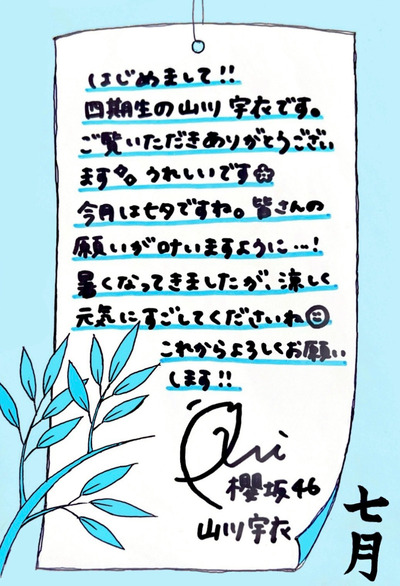 はじめまして!!
四期生の山川宇衣です。
ご覧いただきありがとうござい
ます。うれしいです
今月は七夕ですね。皆さんの
願いが叶いますように…!
暑くなってきましたが、涼しく
元気にすごしてくださいね
これからよろしくお願い
します!!
Ui
櫻坂46
山川宇衣
七月